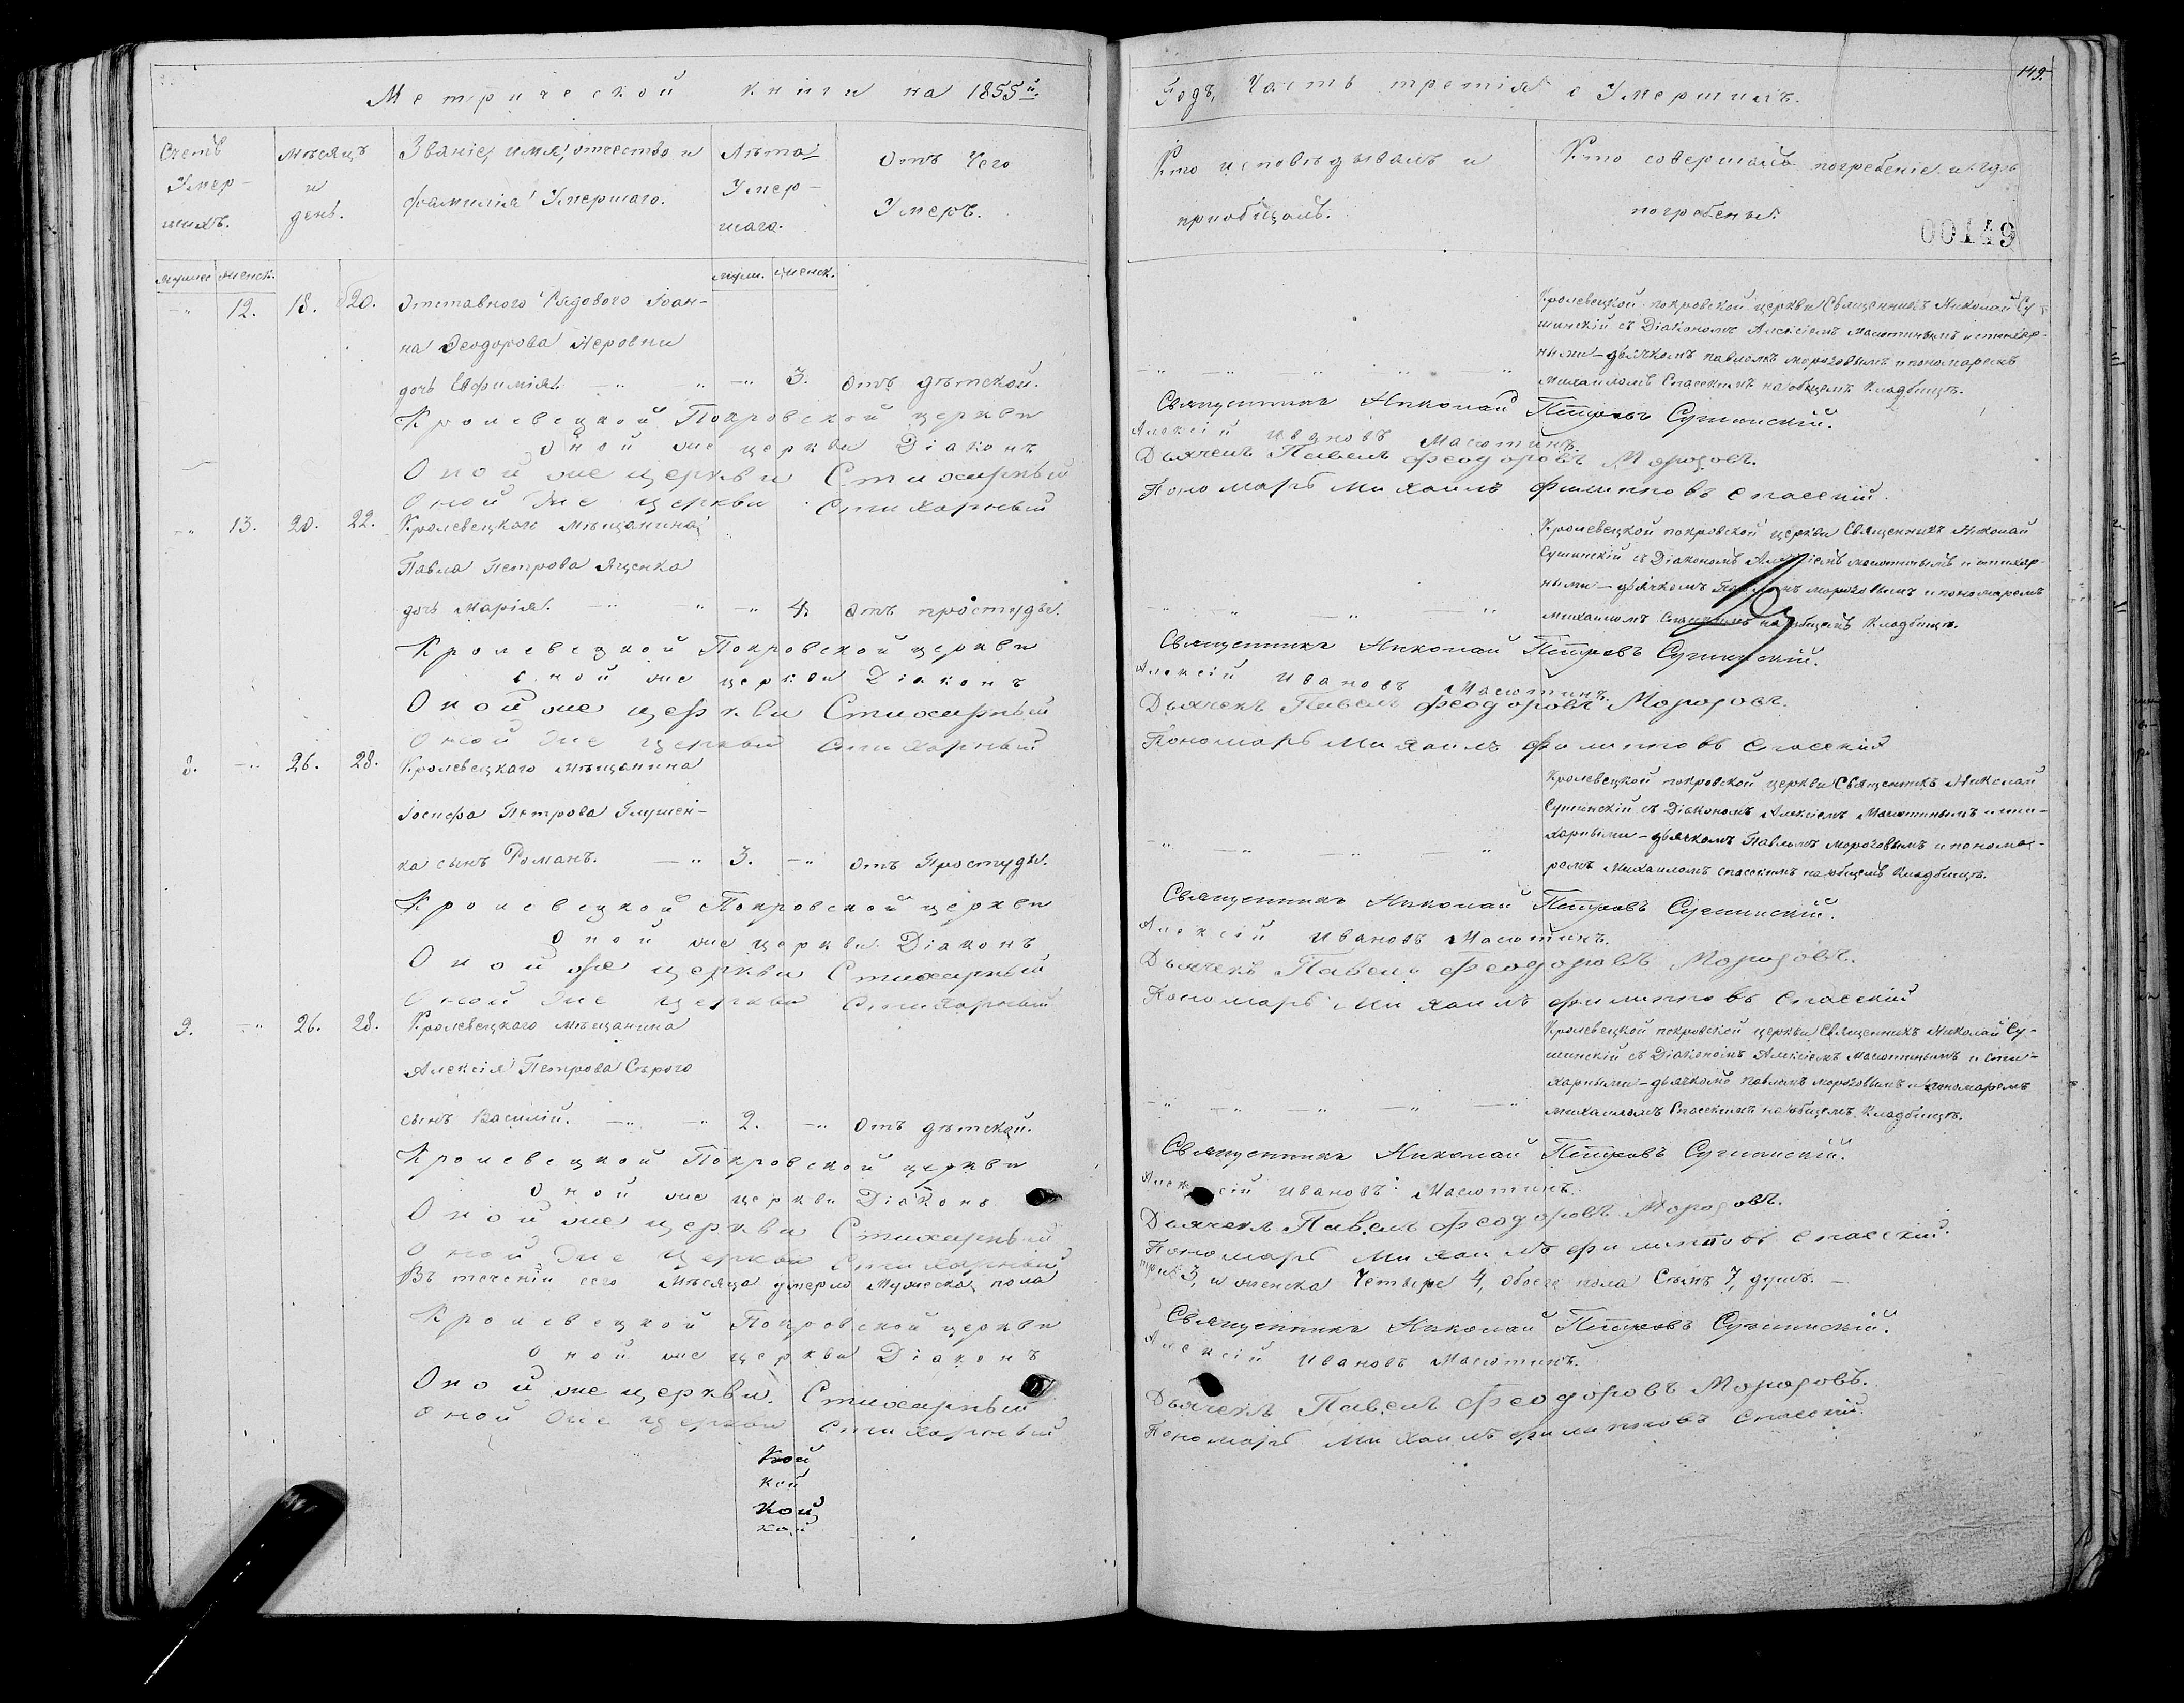 Метрической книги на 1855й.
Годъ, Часть третія о Умершихъ.
149.
Счетъ Умер-шихъ.
Мѣсяцъ и день.
Званіе, имя, отчество и фамилія Умершаго.
Лѣта Умер-шаго.
Отъ Чего Умеръ.
Кто исповѣдывалъ и пріобщалъ.
Кто совершалъ погребеніе и гдѣ погребены.
00149
мужес женск.
мужи. женск.
12. 18. 20. Отставного Рядового Іоан-
на Ѳеодорова Неровни
дочь Евфимія. 3. Отъ дѣтской.
Кролевецкой покровской церкви Священникъ Николай Су-
шинскій съ Діакономъ Алексіемъ Масютинымъ и стихар-
ными - дьячкомъ павломъ морозовымъ и пономаремъ
михаиломъ Спасскимъ на общемъ Кладбищѣ.
Кролевецкой Покровской церкви Священникъ Николай Петровъ Сушинскій.
Оной же церкви Діаконъ Алексій Ивановъ Масютинъ.
Оной же церкви Стихарный Дьячекъ Павелъ Феодоровъ Морозовъ.
Оной же церкви Стихарный Пономарь Михаилъ Филипповъ Спасскій.
13. 20. 22. Кролевецкого Мѣщанина
Павла Петрова Яценка
дочь Марія. 4. Отъ простуды.
Кролевецкой покровской церкви Священникъ Николай
Сушинскій съ Діакономъ Алексіемъ масютинымъ и стихар-
ными - дьячкомъ Павломъ морозовымъ и пономаремъ
михаиломъ Спасскимъ на общемъ Кладбищѣ.
Кролевецкой Покровской церкви Священникъ Николай Петровъ Сушинскій.
Оной же церкви Діаконъ Алексій Ивановъ Масютинъ.
Оной же церкви Стихарный Дьячекъ Павелъ Феодоровъ Морозовъ.
Оной же церкви Стихарный Пономарь Михаилъ Филипповъ Спасскій
8. 26. 28. Кролевецкаго мѣщанина
Іосифа Петрова Глушен-
ка сынъ Романъ. 3. Отъ Простуды.
Кролевецкой покровской церкви Священникъ Николай
Сушинскій съ Діакономъ Алексіемъ Масютинымъ и сти-
харными - дьячкомъ Павломъ Морозовымъ и понома-
ремъ Михаиломъ спасскимъ на общемъ Кладбищѣ.
Кролевецкой Покровской церкви Священникъ Николай Петровъ Сушинскій.
Оной же церкви Діаконъ Алексій Ивановъ Масютинъ.
Оной же церкви Стихарный Дьячекъ Павелъ Феодоровъ Морозовъ.
Оной же церкви Стихарный Пономарь Михаилъ Филипповъ Спасскій
9. 26. 28. Кролевецкаго мѣщанина
Алексія Петрова Сѣрого
сынъ Василій. 2. Отъ дѣтской.
Кролевецкой покровской церкви Священникъ Николай Су-
шинскій съ Діакономъ Алексіемъ масютинымъ и сти-
харными - дьячкомъ павломъ морозовымъ и пономаремъ
михаиломъ Спасскимъ на общемъ Кладбищѣ.
Кролевецкой Покровской церкви Священникъ Николай Петровъ Сушинскій.
Оной же церкви Діаконъ Алексій Ивановъ Масютинъ.
Оной же церкви Стихарный Дьячекъ Павелъ Феодоровъ Морозовъ.
Оной же церкви Стихарный Пономарь Михаилъ Филипповъ Спасскій.
Въ теченіи сего Мѣсяца умерло Мужеска пола три 3, и женска Четыре 4, обоего пола Семь 7, душъ.
Кролевецкой Покровской церкви Священникъ Николай Петровъ Сушинскій.
Оной же церкви Діаконъ Алексій Ивановъ Масютинъ.
Оной же церкви. Стихарный Дьячекъ Павелъ Феодоровъ Морозовъ.
Оной же церкви Стихарный Пономарь Михаилъ Филипповъ Спасскій.
Кой
кой
Кой
кой